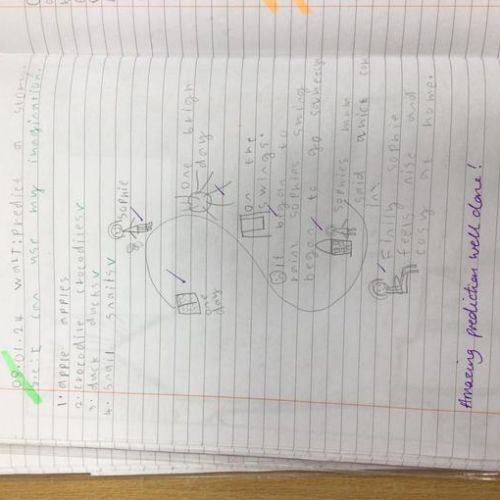 09.01.24 walt: predict a story.
s.c: i can use my imagination.
1. apple apples
2. crocodile crocodiles
3. duck ducks
4. snail snails
Sophie
one day
one brigh
day
on the
swings.
it began to
rain sophies swing
began to go
sophies mum
said quick com
in
Finlly sophie
feels nise and
cosy at home.
Amazing prediction well done!